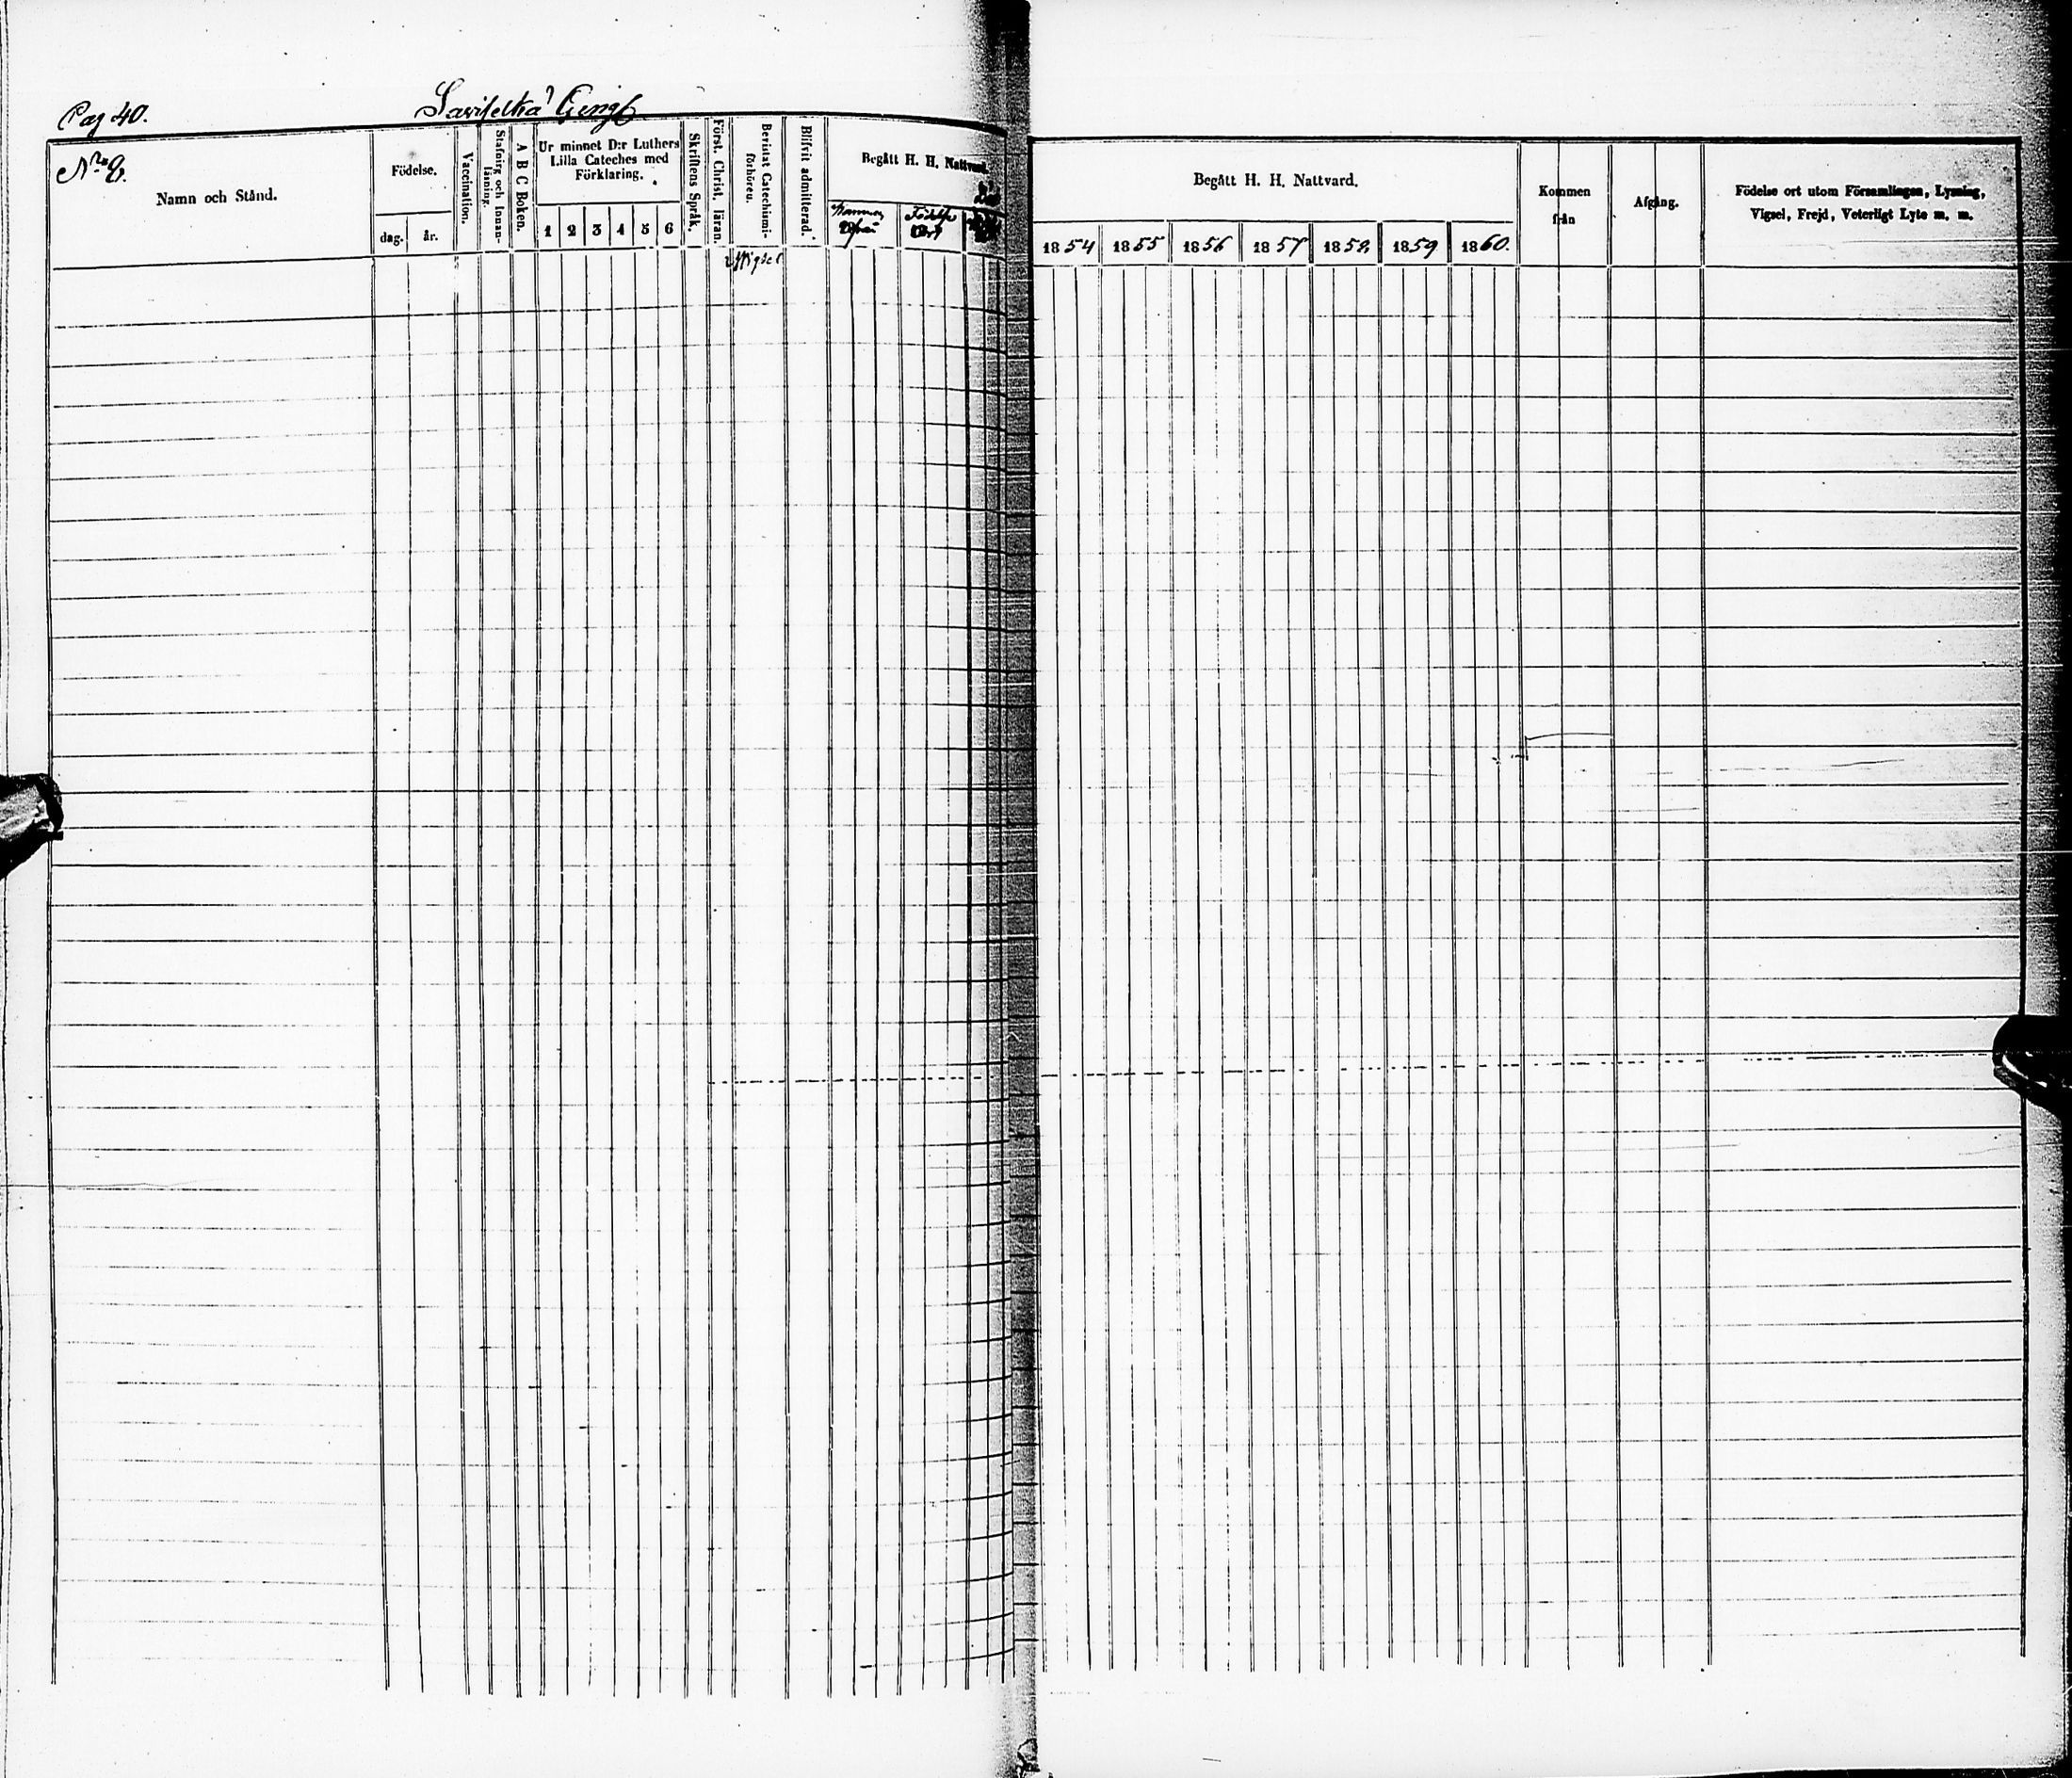 Pag 40.
No 8.
Namn och Stånd.
Födelse.
dag.
år.
Vaccination.
Stafning och Innan-
läsning.
A B C Boken.
Ur minnet D:r Luthers
Lilla Cateches med
Förklaring.
1 2 3 4 5 6
Skriftens Språk.
Först. Christ. läran.
Bevistat Catechismi-
förhören.
Blifvit admitterad.
Begått H. H. Nattvard.
Födelse
Ort
Vigsel
Begått H. H. Nattvard.
1854 1855 1856 1857 1858 1859 1860.
Kommen
från
Afgång.
Födelse ort utom Församlingen, Lysning,
Vigsel, Frejd, Veterligt Lyte m. m.